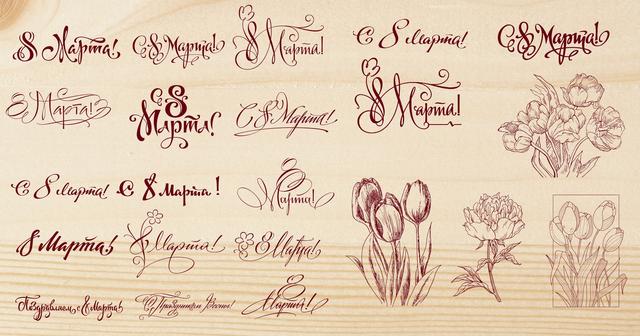 8 Марта!
С 8 Марта!
8 Марта!
С 8 Марта!
С 8 Марта!
8 Марта!
С 8 Марта!
С 8 Марта!
8 Марта!
С 8 Марта!
С 8 Марта!
8 Марта!
8 Марта!
8 Марта!
8 Марта!
Поздравляем с 8 Марта!
С Праздником Весны!
8 Марта!